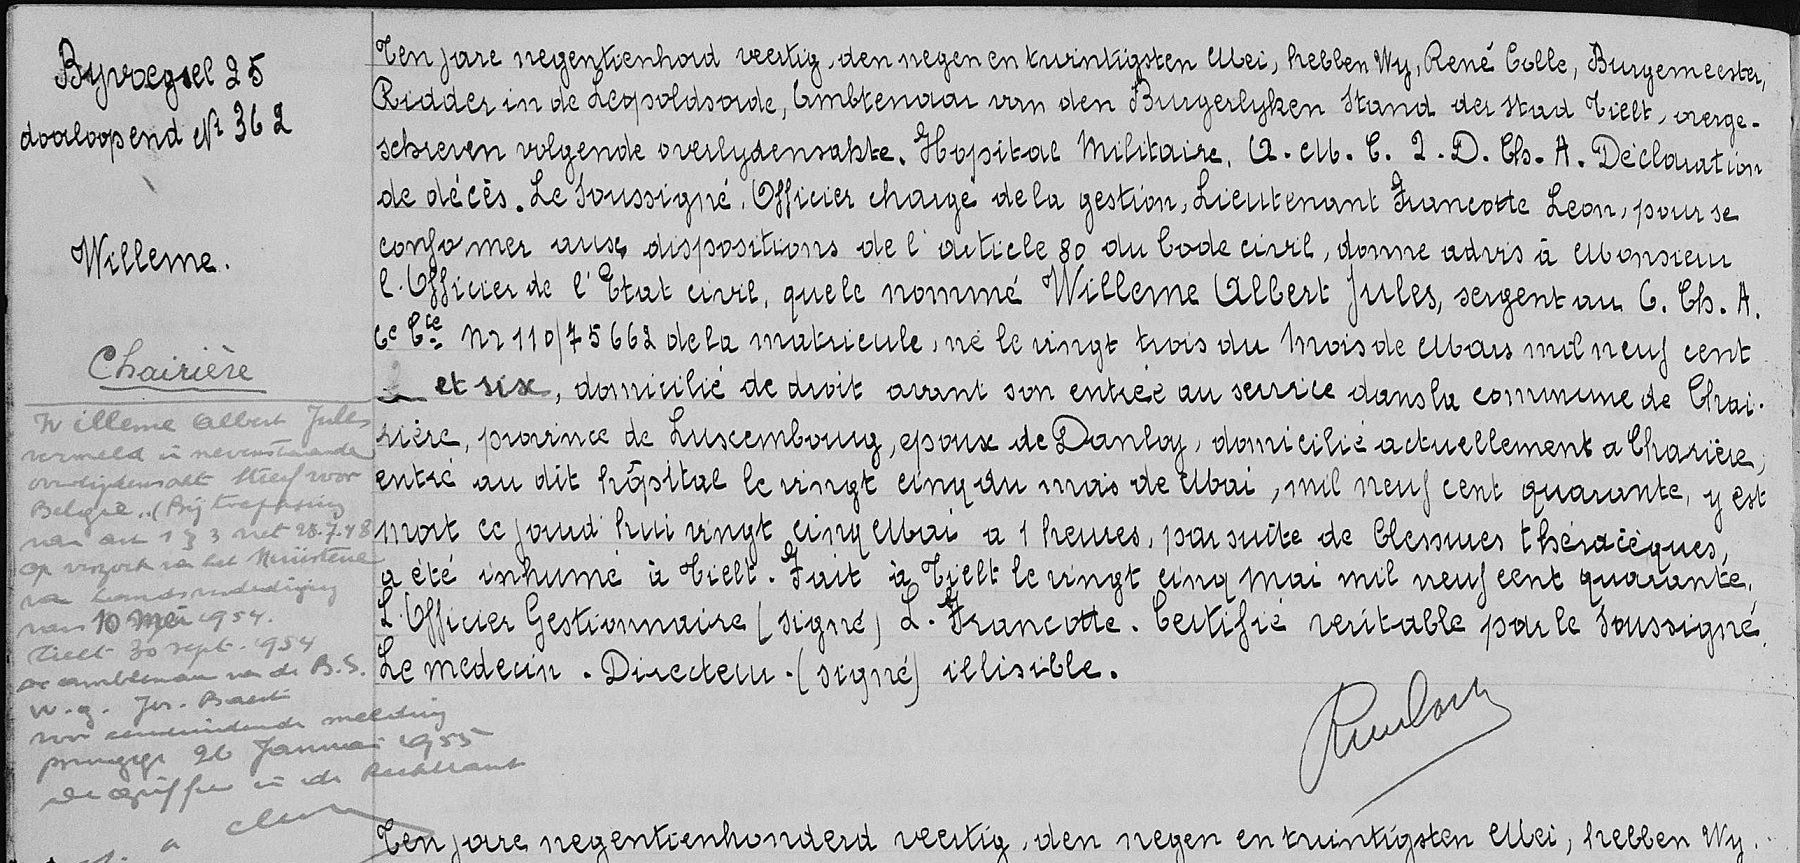 Byvoegsel 25
doorloopend Nr 362
Willeme.
Chairière
Willeme Albert Jules
vermeld in nevenstaande
overlijdensakt stierf voor
België. (Bij toepassing
van art 1 § 3 wet 28.7.48
op verzoek van het Ministerie
van Landsverdediging
van 10 Mei 1954.
Tielt 30 sept. 1954
De ambtenaar van de B.S.
w.g. Jos. Baert
voor eensluidende melding
26 Januari 1955
De Griffier
Ten jare negentienhond veertig, den negen en twintigsten Mei, hebben Wy, René Colle, Burgemeester,
Ridder in de Leopoldsorde, Ambtenaar van den Burgerlyken Stand der Stad Tielt, overge-
schreven volgende overlydensakte. Hopital Militaire. A. M. C. 2. D. Ch. A. Déclaration
de décès. Le Soussigné, Officier chargé de la gestion, Lieutenant Francotte Leon, pour se
confomer aux dispositions de l'article 80 du Code civil, donne advis à Monsieur
l'Officier de l'Etat civil, que le nommé Willeme Albert Jules, sergent au 6. Ch. A.
6e Cie Nr 110/75662 de la matricule, né le vingt trois du mois de Mars mil neuf cent
et six, domicilié de droit avant son entrée au service dans la commune de Chai-
rière, province de Luxembourg, epoux de Danloy, domicilié actuellement a Charière,
entré au dit hôpital le vingt cinq du mois de Mai, mil neuf cent quarante, y est
mort ce jourd'hui vingt cinq Mai a 1 heures, par suite de blessures théracèques,
a été inhumé à Tielt. Fait à Tielt le vingt cinq mai mil neuf cent quarante.
L'Officier Gestionnaire (signé) L. Francotte. Certifié veritable par le Soussigné.
Le medecin. Directeur. (signé) illisible.
Ten jare negentienhonderd veertig, den negen en twintigsten Mei, hebben Wy.